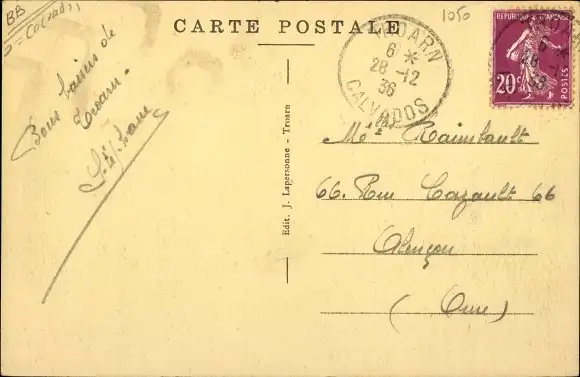 BB
CARTE POSTALE
1050
TROARN
6 *
28 -12
36
CALVADOS
RÉPUBLIQUE FRANÇAISE
20c
POSTES
Bons baisers de
Troarn.
Stéphane
Edit. J. Lapersonne - Troarn
Mlle Raimbault
66. Rue Cazault 66
Alençon
(Orne)